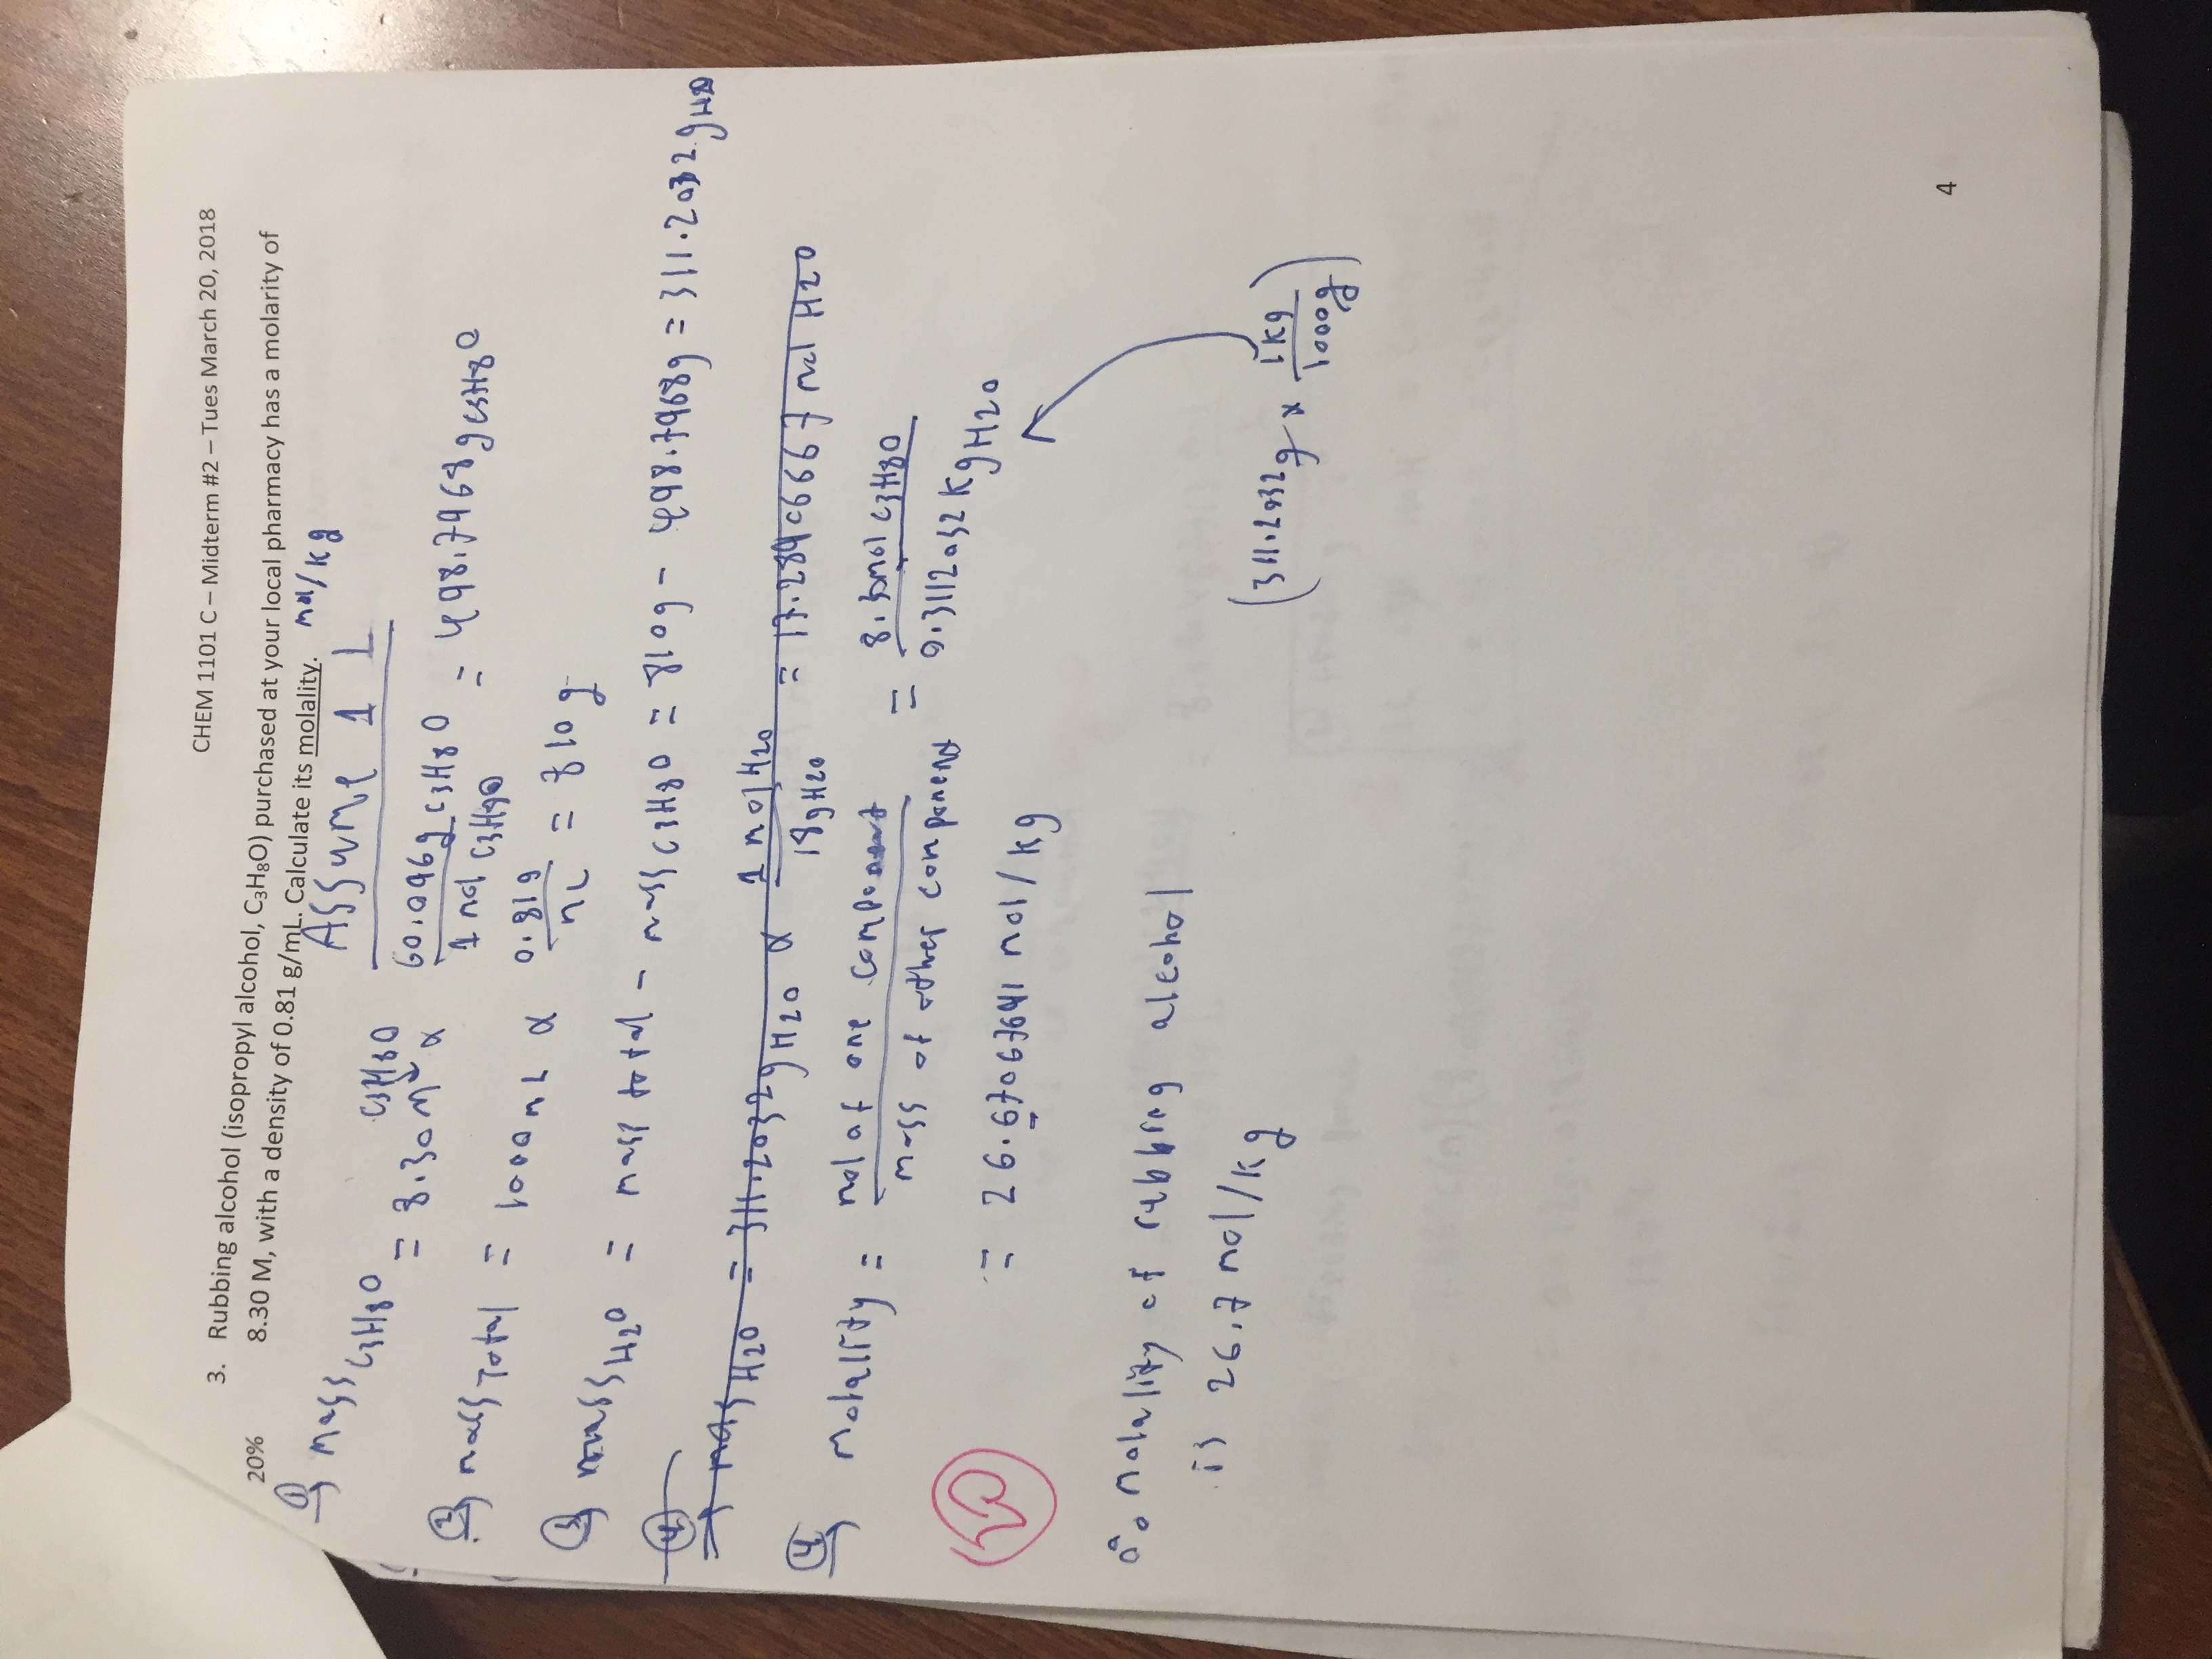 CHEM 1101 C – Midterm #2 – Tues March 20, 2018
3. Rubbing alcohol (isopropyl alcohol, C₃H₈O) purchased at your local pharmacy has a molarity of
20% 8.30 M, with a density of 0.81 g/mL. Calculate its molality. mol/kg
Assume 1 L
① mass C3H8O
= 8.30 mol C3H8O x 60.096g C3H8O / 1 mol C3H8O = 498.7968 g C3H8O
② mass Total = 1000 mL x 0.81g / mL = 810 g
③ mass H2O = mass total - mass C3H8O = 810g - 498.7968g = 311.2032 g H2O
④ mass H2O = 311.2032g H2O x 1 mol H2O / 18g H2O = 17.28906667 mol H2O
④ molality = mol of one component / mass of other component = 8.30mol C3H8O / 0.3112032 kg H2O
= 26.67067641 mol/kg
(311.2032g x 1kg / 1000g)
20
∴ molality of rubbing alcohol
is 26.7 mol/kg
4